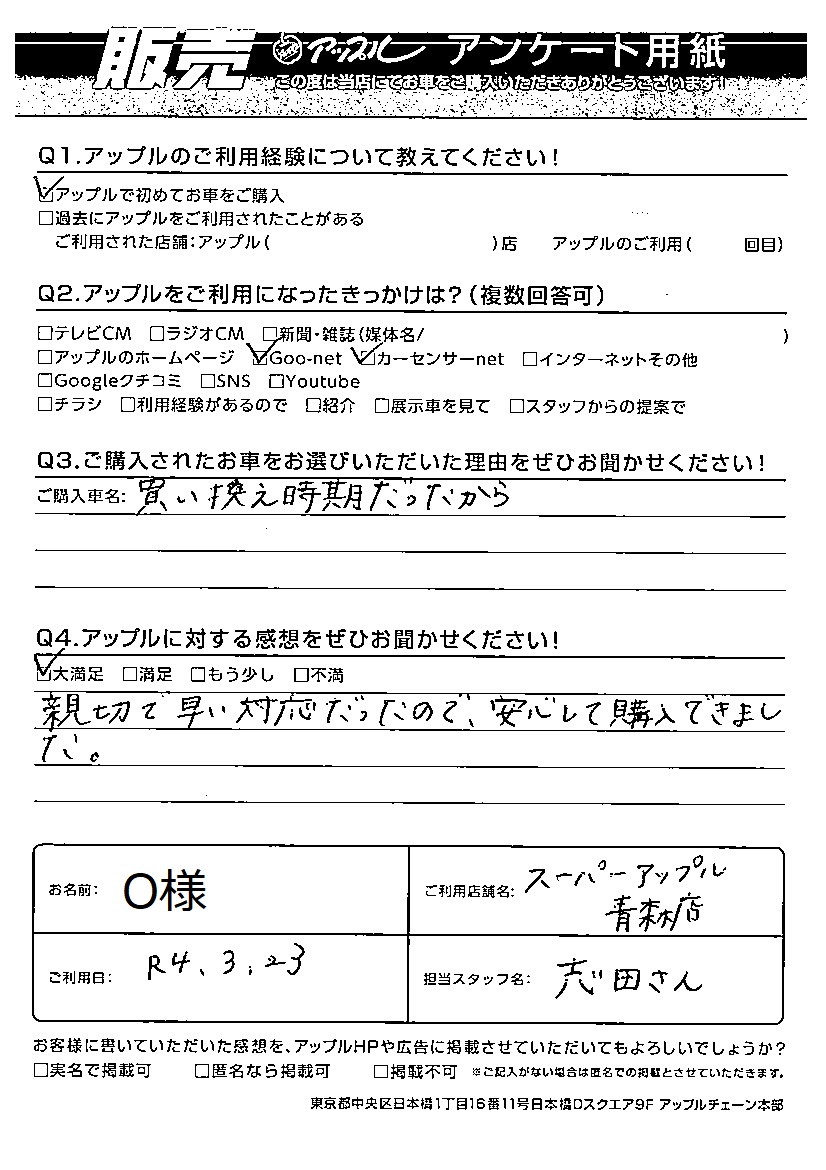 販売 アップル アンケート用紙
この度は当店にてお車をご購入いただきありがとうございます!
Q1.アップルのご利用経験について教えてください!
☑アップルで初めてお車をご購入
□過去にアップルをご利用されたことがある
ご利用された店舗:アップル( )店 アップルのご利用( 回目)
Q2.アップルをご利用になったきっかけは?(複数回答可)
□テレビCM □ラジオCM □新聞・雑誌(媒体名/ )
□アップルのホームページ ☑Goo-net ☑カーセンサーnet □インターネットその他
□Googleクチコミ □SNS □Youtube
□チラシ □利用経験があるので □紹介 □展示車を見て □スタッフからの提案で
Q3.ご購入されたお車をお選びいただいた理由をぜひお聞かせください!
ご購入車名: 買い換え時期だったから
Q4.アップルに対する感想をぜひお聞かせください!
☑大満足 □満足 □もう少し □不満
親切で早い対応だったので、安心して購入できまし
た。
お名前: O様 ご利用店舗名: スーパーアップル
青森店
ご利用日: R4、3、23 担当スタッフ名: 志田さん
お客様に書いていただいた感想を、アップルHPや広告に掲載させていただいてもよろしいでしょうか?
□実名で掲載可 □匿名なら掲載可 □掲載不可 ※ご記入がない場合は匿名での掲載とさせていただきます。
東京都中央区日本橋1丁目16番11号日本橋Dスクエア9F アップルチェーン本部